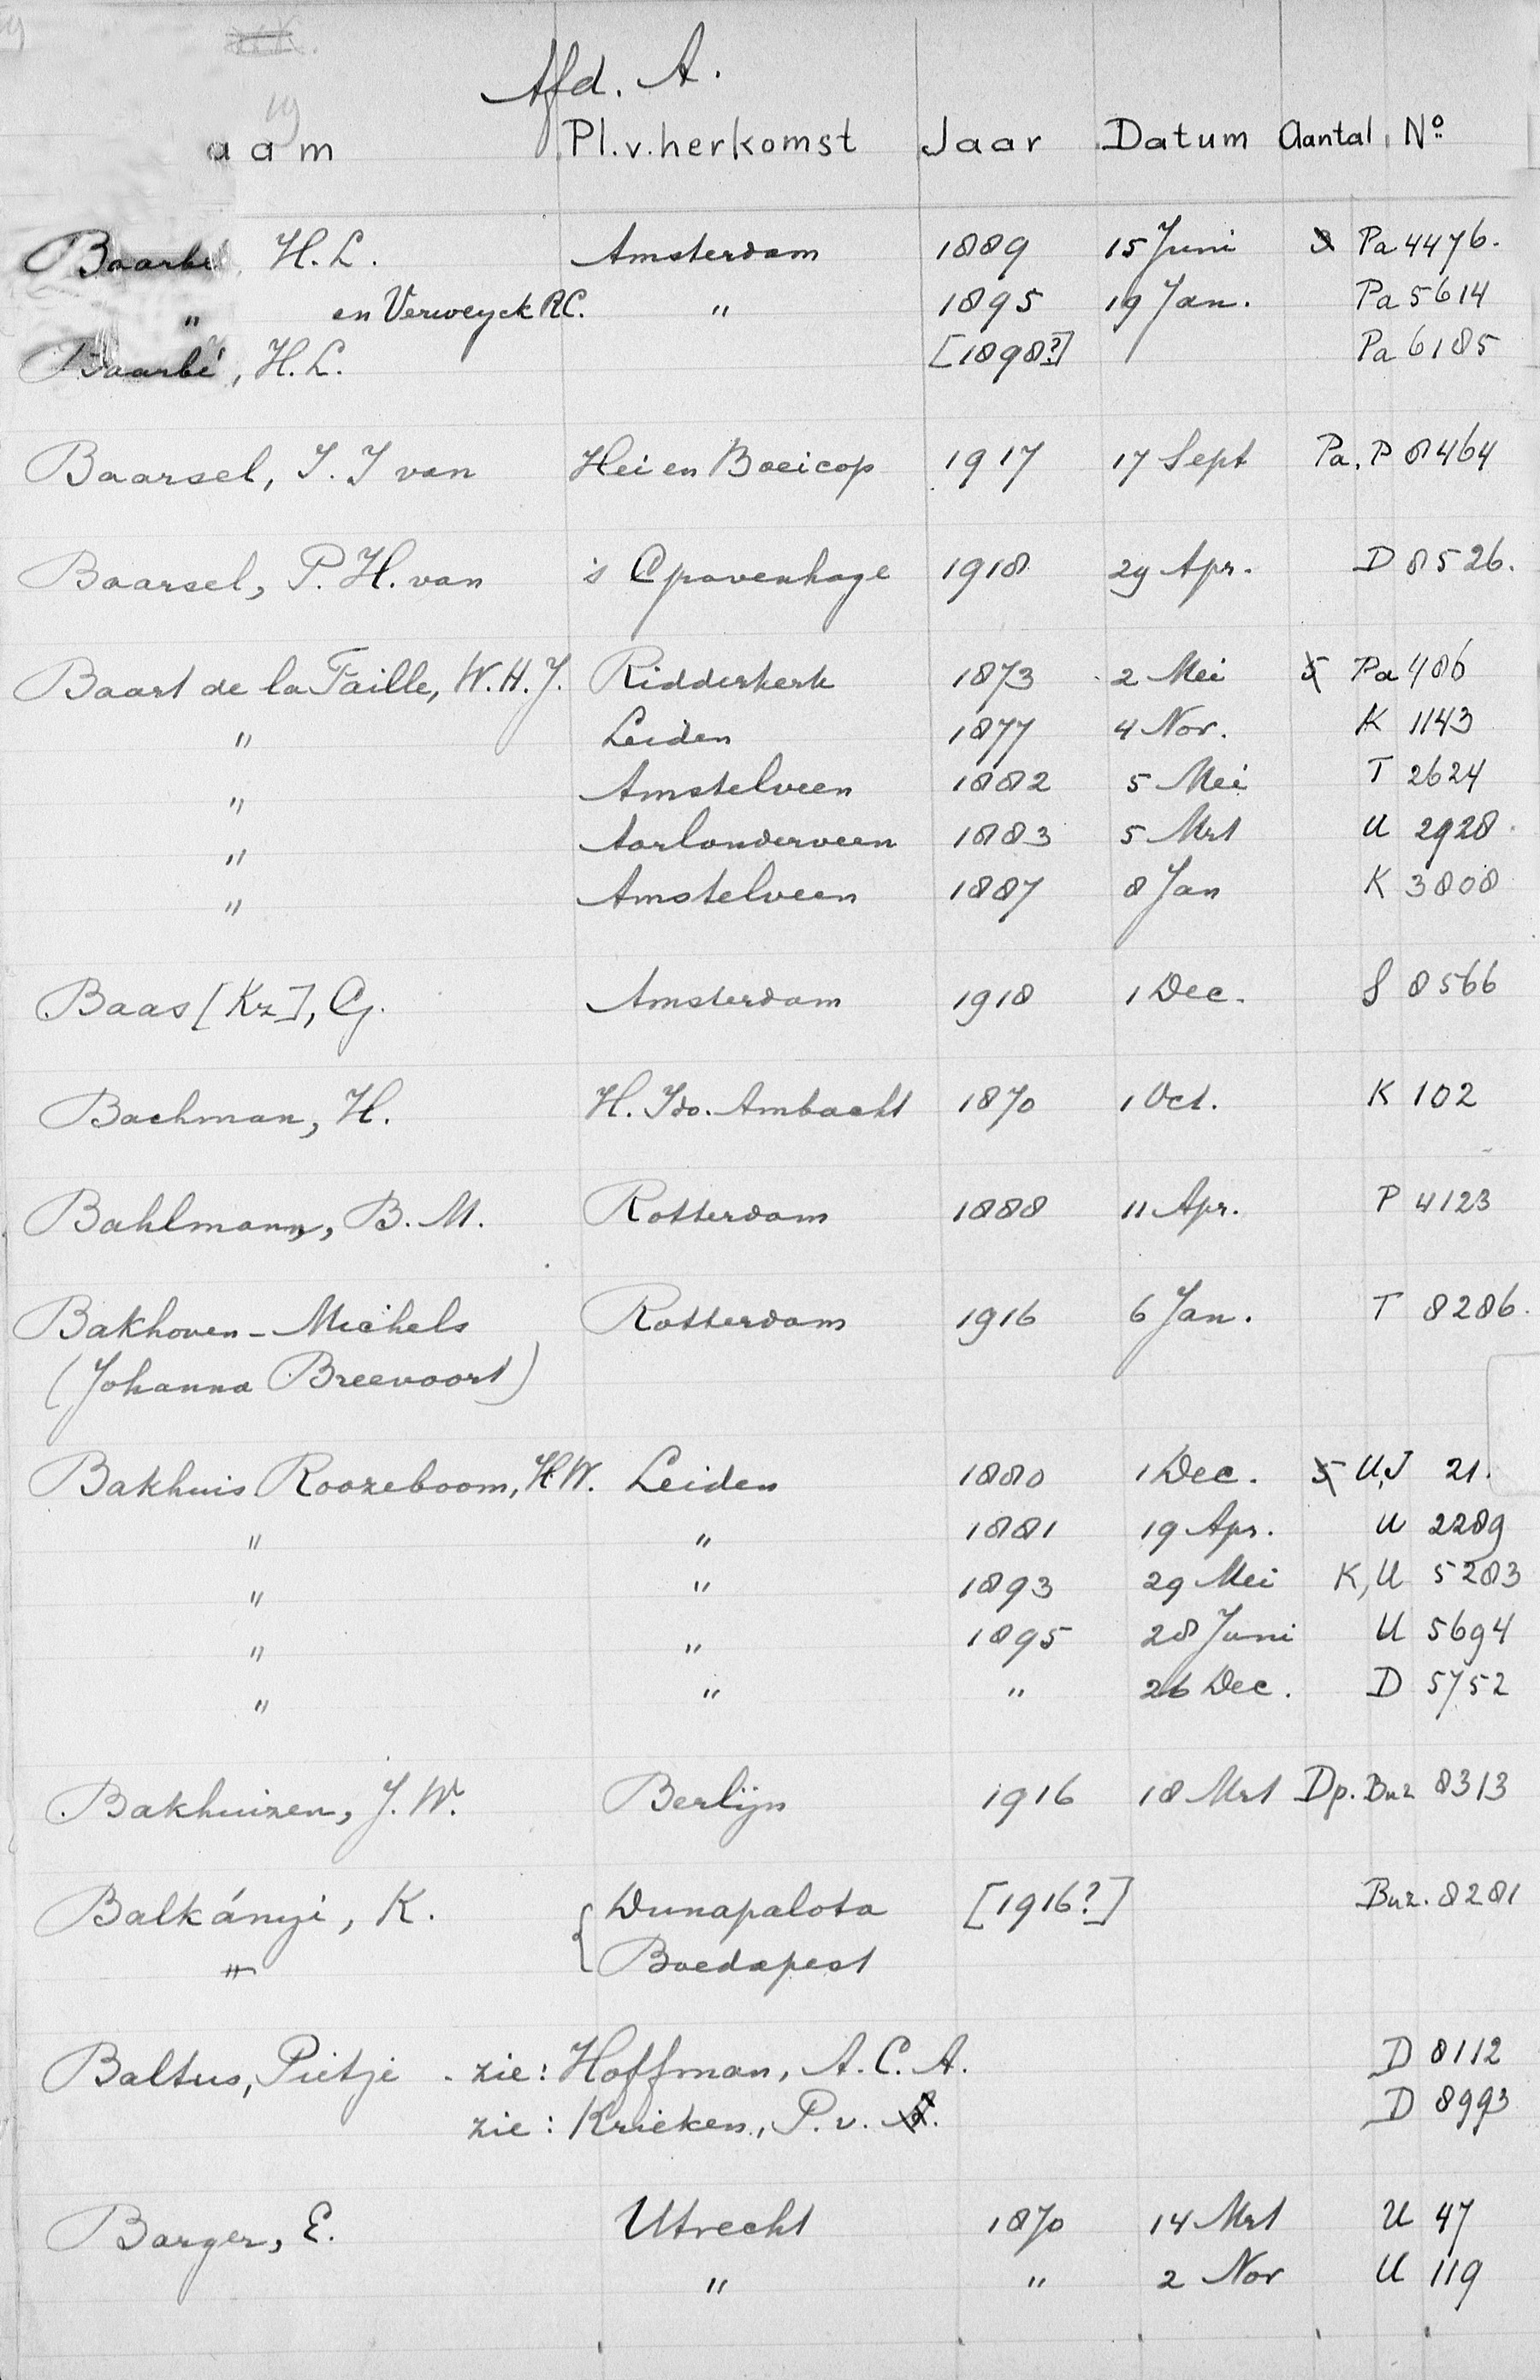 Afd. A.
aam Pl.v.herkomst Jaar Datum Aantal No
Baarbé, H.L. Amsterdam 1889 15 Juni Pa 4476.
" en Verweyck R.C. " 1895 19 Jan. Pa 5614
Baarbé, H.L. [1898?] Pa 6185
Baarsel, J. J van Hei en Boeicop 1917 17 Sept Pa. P 8464
Baarsel, P. H. van 's Gravenhage 1918 29 Apr. D 8526.
Baart de la Faille, W.H.J. Ridderkerk 1873 2 Mei 5 Pa 486
" Leiden 1877 4 Nov. K 1143
" Amstelveen 1882 5 Mei T 2624
" Aarlanderveen 1883 5 Mrt U 2928
" Amstelveen 1887 8 Jan K 3808
Baas [Kz], G. Amsterdam 1918 1 Dec. S 8566
Bachman, H. H. Ido. Ambacht 1870 1 Oct. K 102
Bahlmann, B. M. Rotterdam 1888 11 Apr. P 4123
Bakhoven - Michels Rotterdam 1916 6 Jan. T 8286.
(Johanna Breevoort)
Bakhuis Roozeboom, H.W. Leiden 1880 1 Dec. 5 U,J 21.
" " 1881 19 Apr. U 2289
" " 1893 29 Mei K, U 5283
" " 1895 28 Juni U 5694
" " " 26 Dec. D 5752
Bakhuizen, J. W. Berlijn 1916 18 Mrt Dp. Buz 8313
Balkányi, K. { Dunapalota [1916?] Buz. 8281
" Boedapest
Baltus, Pietje - zie: Hoffman, A. C. A. D 8112
zie: Krieken, P. v. D 8993
Barger, E. Utrecht 1870 14 Mrt U 47
" " 2 Nov U 119